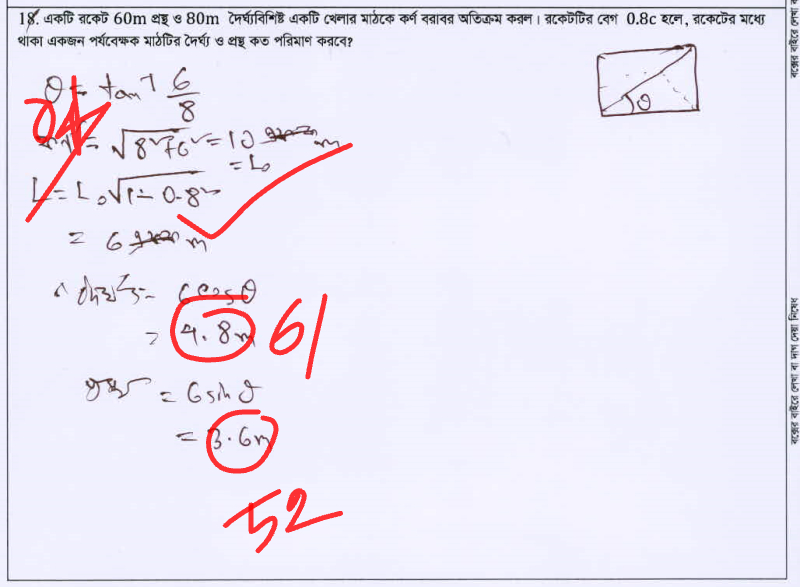 18. একটি রকেট 60m প্রস্থ ও 80m দৈর্ঘ্যবিশিষ্ট একটি খেলার মাঠকে কর্ণ বরাবর অতিক্রম করল। রকেটটির বেগ 0.8c হলে, রকেটের মধ্যে
থাকা একজন পর্যবেক্ষক মাঠটির দৈর্ঘ্য ও প্রস্থ কত পরিমাণ করবে?
θ = tan⁻¹ 6/8
θ
কর্ণ = √8²+6² = 10 m
= L₀
L = L₀√1-0.8²
= 6 m
∴ দৈর্ঘ্য = 6cosθ
= 4.8m
61
প্রস্থ = 6sinθ
= 3.6m
52
বক্সের বাইরে লেখা বা দাগ দেয়া নিষেধ